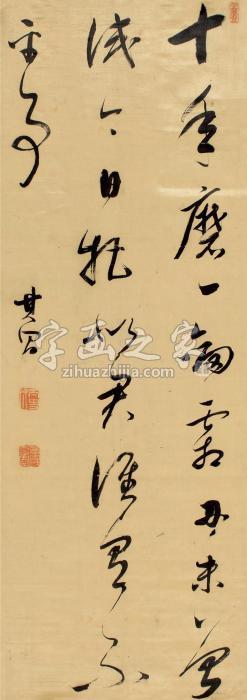 十年磨一劍霜刃未曾
試今日把似君誰不
平事
其昌
字画之家
zihuazhijia.com